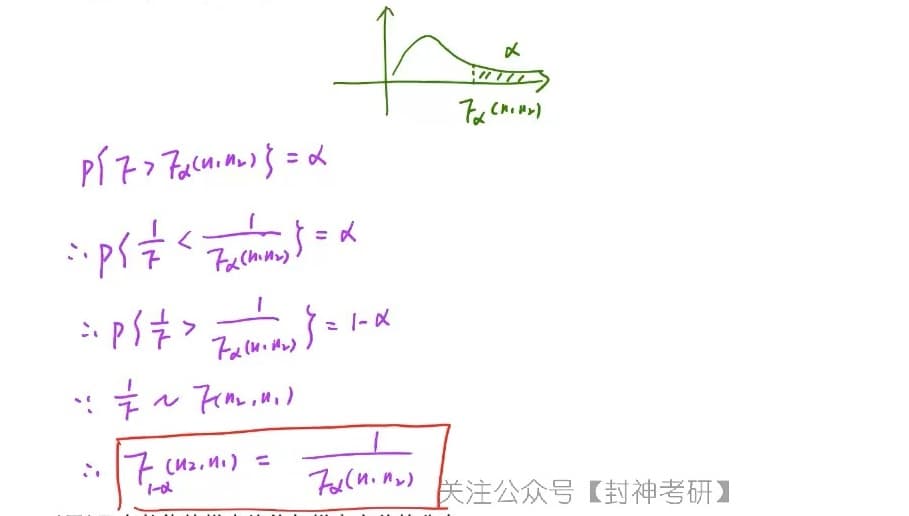 α
F_α(n₁,n₂)
P{F > F_α(n₁,n₂)} = α
∴ P{1/F < 1/F_α(n₁,n₂)} = α
∴ P{1/F > 1/F_α(n₁,n₂)} = 1-α
∵ 1/F ~ F(n₂,n₁)
∴ F_{1-α}(n₂,n₁) = 1/F_α(n₁,n₂)
关注公众号【封神考研】